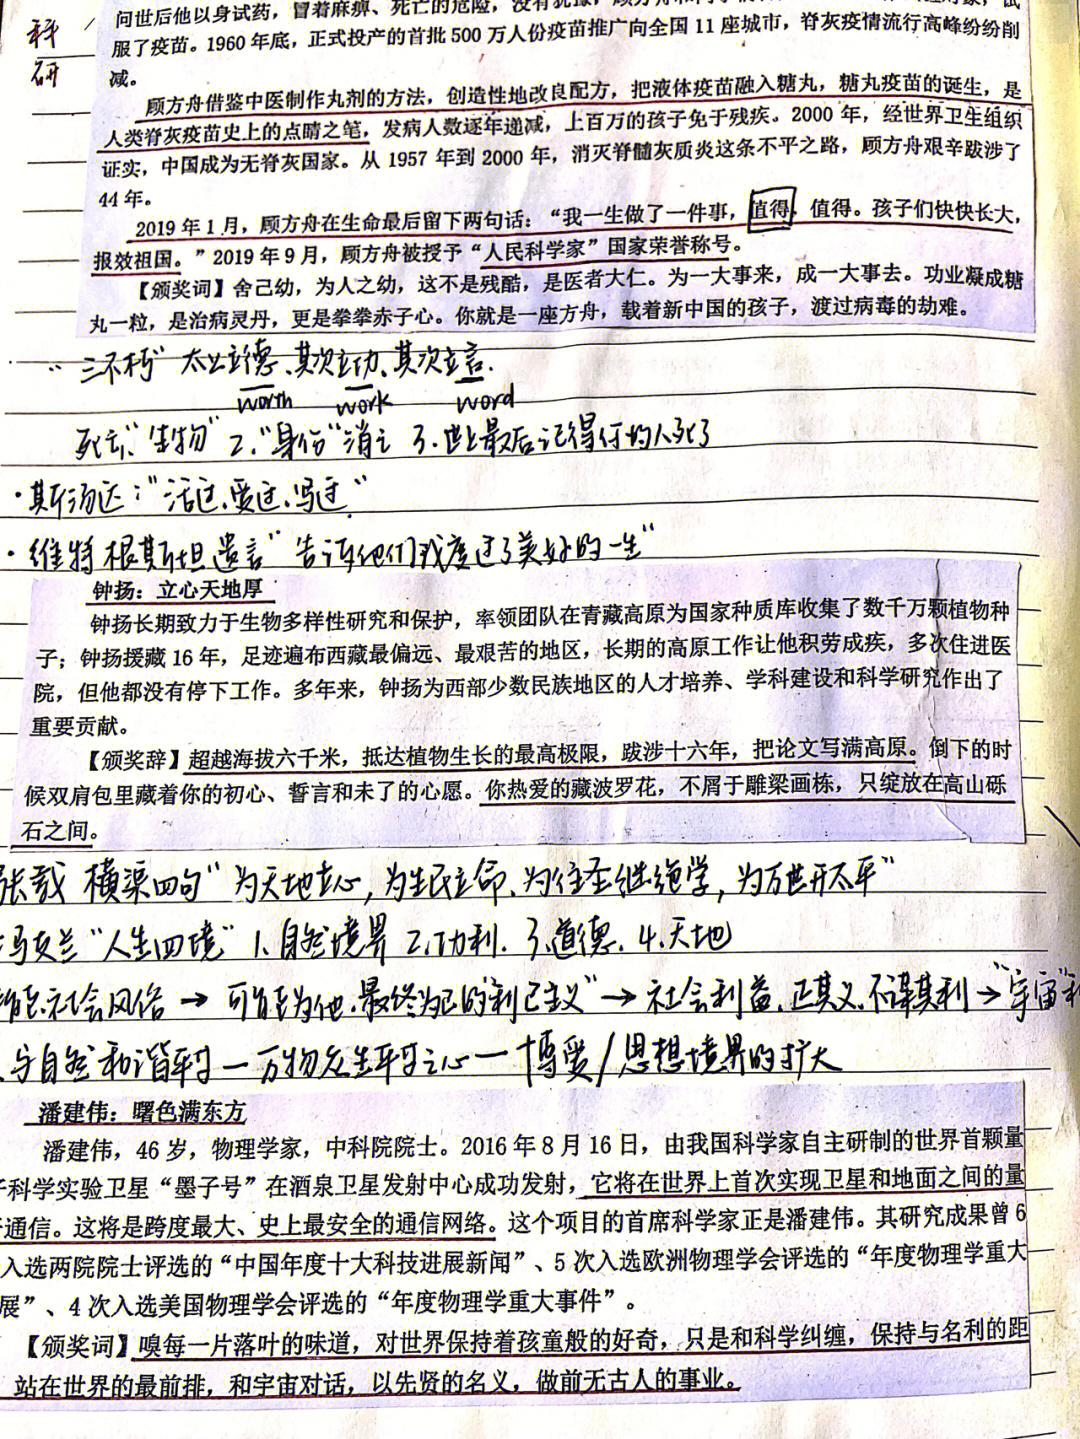 科
研
问世后他以身试药，冒着麻痹、死亡的危险，
服了疫苗。1960年底，正式投产的首批500万人份疫苗推广向全国11座城市，脊灰疫情流行高峰纷纷削
减。
顾方舟借鉴中医制作丸剂的方法，创造性地改良配方，把液体疫苗融入糖丸，糖丸疫苗的诞生，是
人类脊灰疫苗史上的点睛之笔，发病人数逐年递减，上百万的孩子免于残疾。2000年，经世界卫生组织
证实，中国成为无脊灰国家。从1957年到2000年，消灭脊髓灰质炎这条不平之路，顾方舟艰辛跋涉了
44年。
2019年1月，顾方舟在生命最后留下两句话：“我一生做了一件事，值得，值得。孩子们快快长大，
报效祖国。”2019年9月，顾方舟被授予“人民科学家”国家荣誉称号。
【颁奖词】舍己幼，为人之幼，这不是残酷，是医者大仁。为一大事来，成一大事去。功业凝成糖
丸一粒，是治病灵丹，更是拳拳赤子心。你就是一座方舟，载着新中国的孩子，渡过病毒的劫难。
·“三不朽”太上立德、其次立功、其次立言.
worth work word
死亡1.“生物”2.“身份”消亡 3.世上最后记得你的人死了
·斯汤达：“活过、爱过、写过”
·维特根斯坦遗言“告诉他们我度过了美好的一生”
钟扬：立心天地厚
钟扬长期致力于生物多样性研究和保护，率领团队在青藏高原为国家种质库收集了数千万颗植物种
子；钟扬援藏16年，足迹遍布西藏最偏远、最艰苦的地区，长期的高原工作让他积劳成疾，多次住进医
院，但他都没有停下工作。多年来，钟扬为西部少数民族地区的人才培养、学科建设和科学研究作出了
重要贡献。
【颁奖辞】超越海拔六千米，抵达植物生长的最高极限，跋涉十六年，把论文写满高原。倒下的时
候双肩包里藏着你的初心、誓言和未了的心愿。你热爱的藏波罗花，不屑于雕梁画栋，只绽放在高山砾
石之间。
张载 横渠四句“为天地立心，为生民立命、为往圣继绝学，为万世开太平”
冯友兰“人生四境”1.自然境界 2.功利. 3.道德. 4.天地
社会风俗→可能为他.最终为己的“利己主义”→社会利益.正其义.不谋其利→“宇宙
与自然和谐平等—万物众生平等之心—博爱/思想境界的扩大
潘建伟：曙色满东方
潘建伟，46岁，物理学家，中科院院士。2016年8月16日，由我国科学家自主研制的世界首颗量
科学实验卫星“墨子号”在酒泉卫星发射中心成功发射，它将在世界上首次实现卫星和地面之间的量
通信。这将是跨度最大、史上最安全的通信网络。这个项目的首席科学家正是潘建伟。其研究成果曾6
入选两院院士评选的“中国年度十大科技进展新闻”、5次入选欧洲物理学会评选的“年度物理学重大
展”、4次入选美国物理学会评选的“年度物理学重大事件”。
【颁奖词】嗅每一片落叶的味道，对世界保持着孩童般的好奇，只是和科学纠缠，保持与名利的距
站在世界的最前排，和宇宙对话，以先贤的名义，做前无古人的事业。